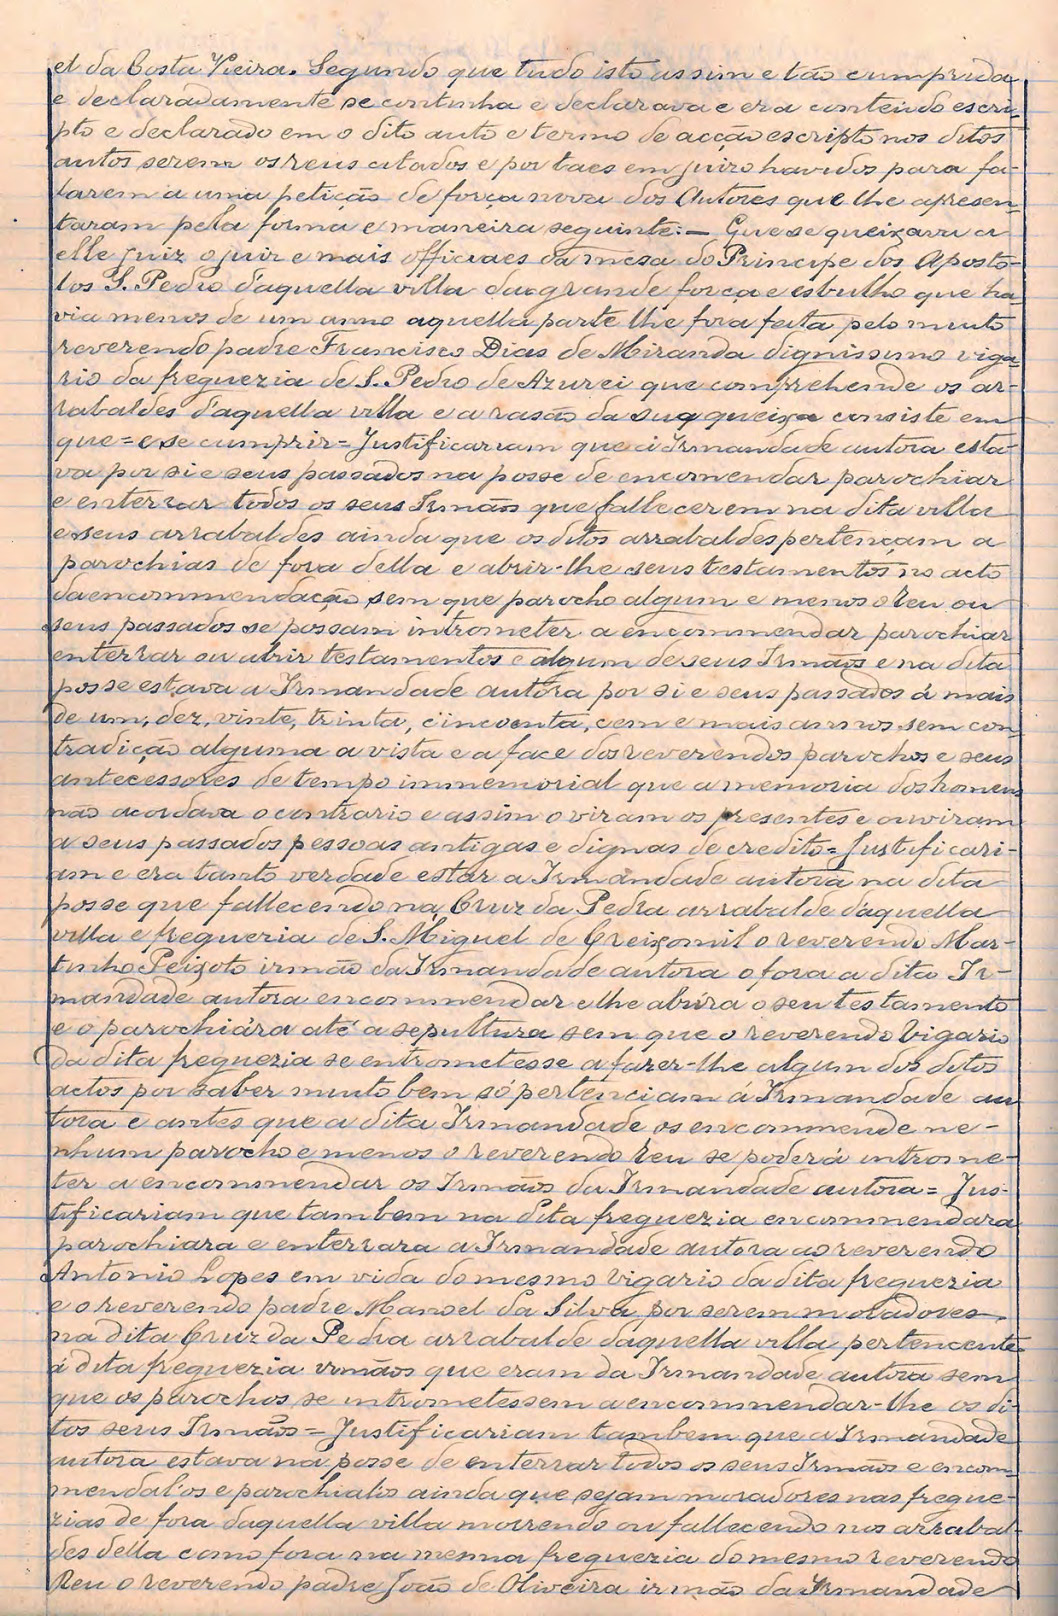 el da Costa Vieira. Segundo que tudo isto assim e tão cumprida
e declaradamente se continha e declarava e era conteudo escri-
pto e declarado em o dito auto e termo de acção escripto nos ditos
autos serem os reus citados e por taes em juizo havidos para fa-
larem a uma petição de força nova dos Autores que lhe apresen-
taram pela forma e maneira seguinte:— Que se queixava a
elle Juiz o juiz e mais officiaes da mesa do Principe dos Aposto-
los S. Pedro d'aquella villa da grande força e esbulho que ha-
via menos de um anno aquella parte lhe fora feita pelo muito
reverendo padre Francisco Dias de Miranda dignissimo viga-
rio da freguezia de S. Pedro de Azurei que comprehende os ar-
rabaldes d'aquella villa e a rasão da sua queixa consiste em
que = e se cumprir = Justificariam que a Irmandade autora esta-
va por si e seus passados na posse de encomendar parochiar
e enterrar todos os seus Irmãos que fallecerem na dita villa
e seus arrabaldes ainda que os ditos arrabaldes pertençam a
parochias de fora della e abrir-lhe seus testamentos no acto
da encommendação sem que parocho algum e menos o reu ou
seus passados se possam intrometer a encommendar parochiar
enterrar ou abrir testamentos e algum de seus Irmãos e na dita
posse estava a Irmandade autora por si e seus passados á mais
de um, dez, vinte, trinta, cincoenta, cem e mais annos sem con-
tradição alguma a vista e a face dos reverendos parochos e seus
antecessores de tempo immemorial que a memoria dos homens
não acordava o contrario e assim o viram os presentes e ouviram
a seus passados pessoas antigas e dignas de credito = Justificari-
am e era tanto verdade estar a Irmandade autora na dita
posse que fallecendo na Cruz da Pedra arrabalde d'aquella
villa e freguezia de S. Miguel de Creixomil o reverendo Mar-
tinho Peixoto irmão da Irmandade autora o fora a dita Ir-
mandade autora encommendar e lhe abrira o seu testamento
e o parochiára até a sepultura sem que o reverendo Vigario
da dita freguezia se entrometesse a fazer-lhe algum dos ditos
actos por saber muito bem só pertenciam á Irmandade au
tora e antes que a dita Irmandade os encommende ne-
nhum parocho e menos o reverendo reu se poderá introme-
ter a encommendar os Irmãos da Irmandade autora = Jus-
tificariam que tambem na dita freguezia encommendara
parochiara e enterrara a Irmandade autora ao reverendo
Antonio Lopes em vida do mesmo Vigario da dita freguezia
e o reverendo padre Manoel da Silva por serem moradores
na dita Cruz da Pedra arrabalde daquella villa pertencente
á dita freguezia irmãos que eram da Irmandade autora sem
que os parochos se intrometessem a encommendar-lhe os di-
tos seus Irmãos = Justificariam tambem que a Irmandade
autora estava na posse de enterrar todos os seus Irmãos e encom-
mendal'os e parochialos ainda que sejam moradores nas fregue-
zias de fora daquella villa morrendo ou fallecendo nos arrabal-
des della como fora na mesma freguezia do mesmo reverendo
Reu o reverendo padre João de Oliveira irmão da Irmandade